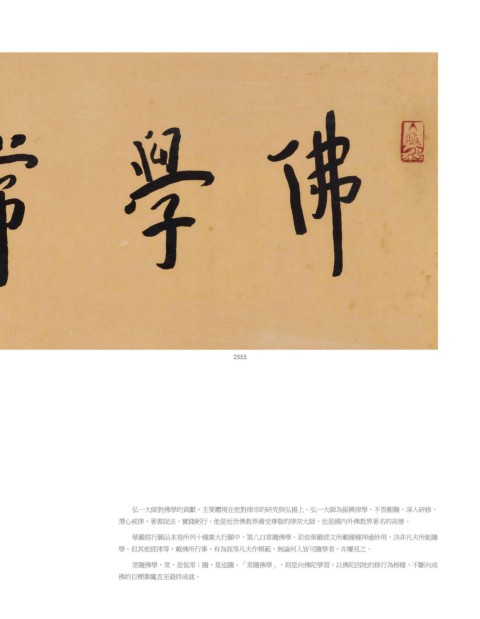 佛學常
2555
弘一大師對佛學的貢獻，主要體現在他對律宗的研究與弘揚上。弘一大師為振興律學，不畏艱難，深入研修，
潛心戒律，著書說法，實踐躬行。他是近世佛教界備受尊敬的律宗大師，也是國內外佛教界著名的高僧。
華嚴經行願品末卷所列十種廣大行願中，第八曰常隨佛學。若依華嚴經文所載種種神通妙用，決非凡夫所能隨
學。但其他經律等，載佛所行事，有為我等凡夫作模範，無論何人皆可隨學者，亦屢見之。
常隨佛學，常，是恆常；隨，是追隨。「常隨佛學」，則是向佛陀學習，以佛陀因地的修行為榜樣，不斷向成
佛的目標靠攏直至最終成就。